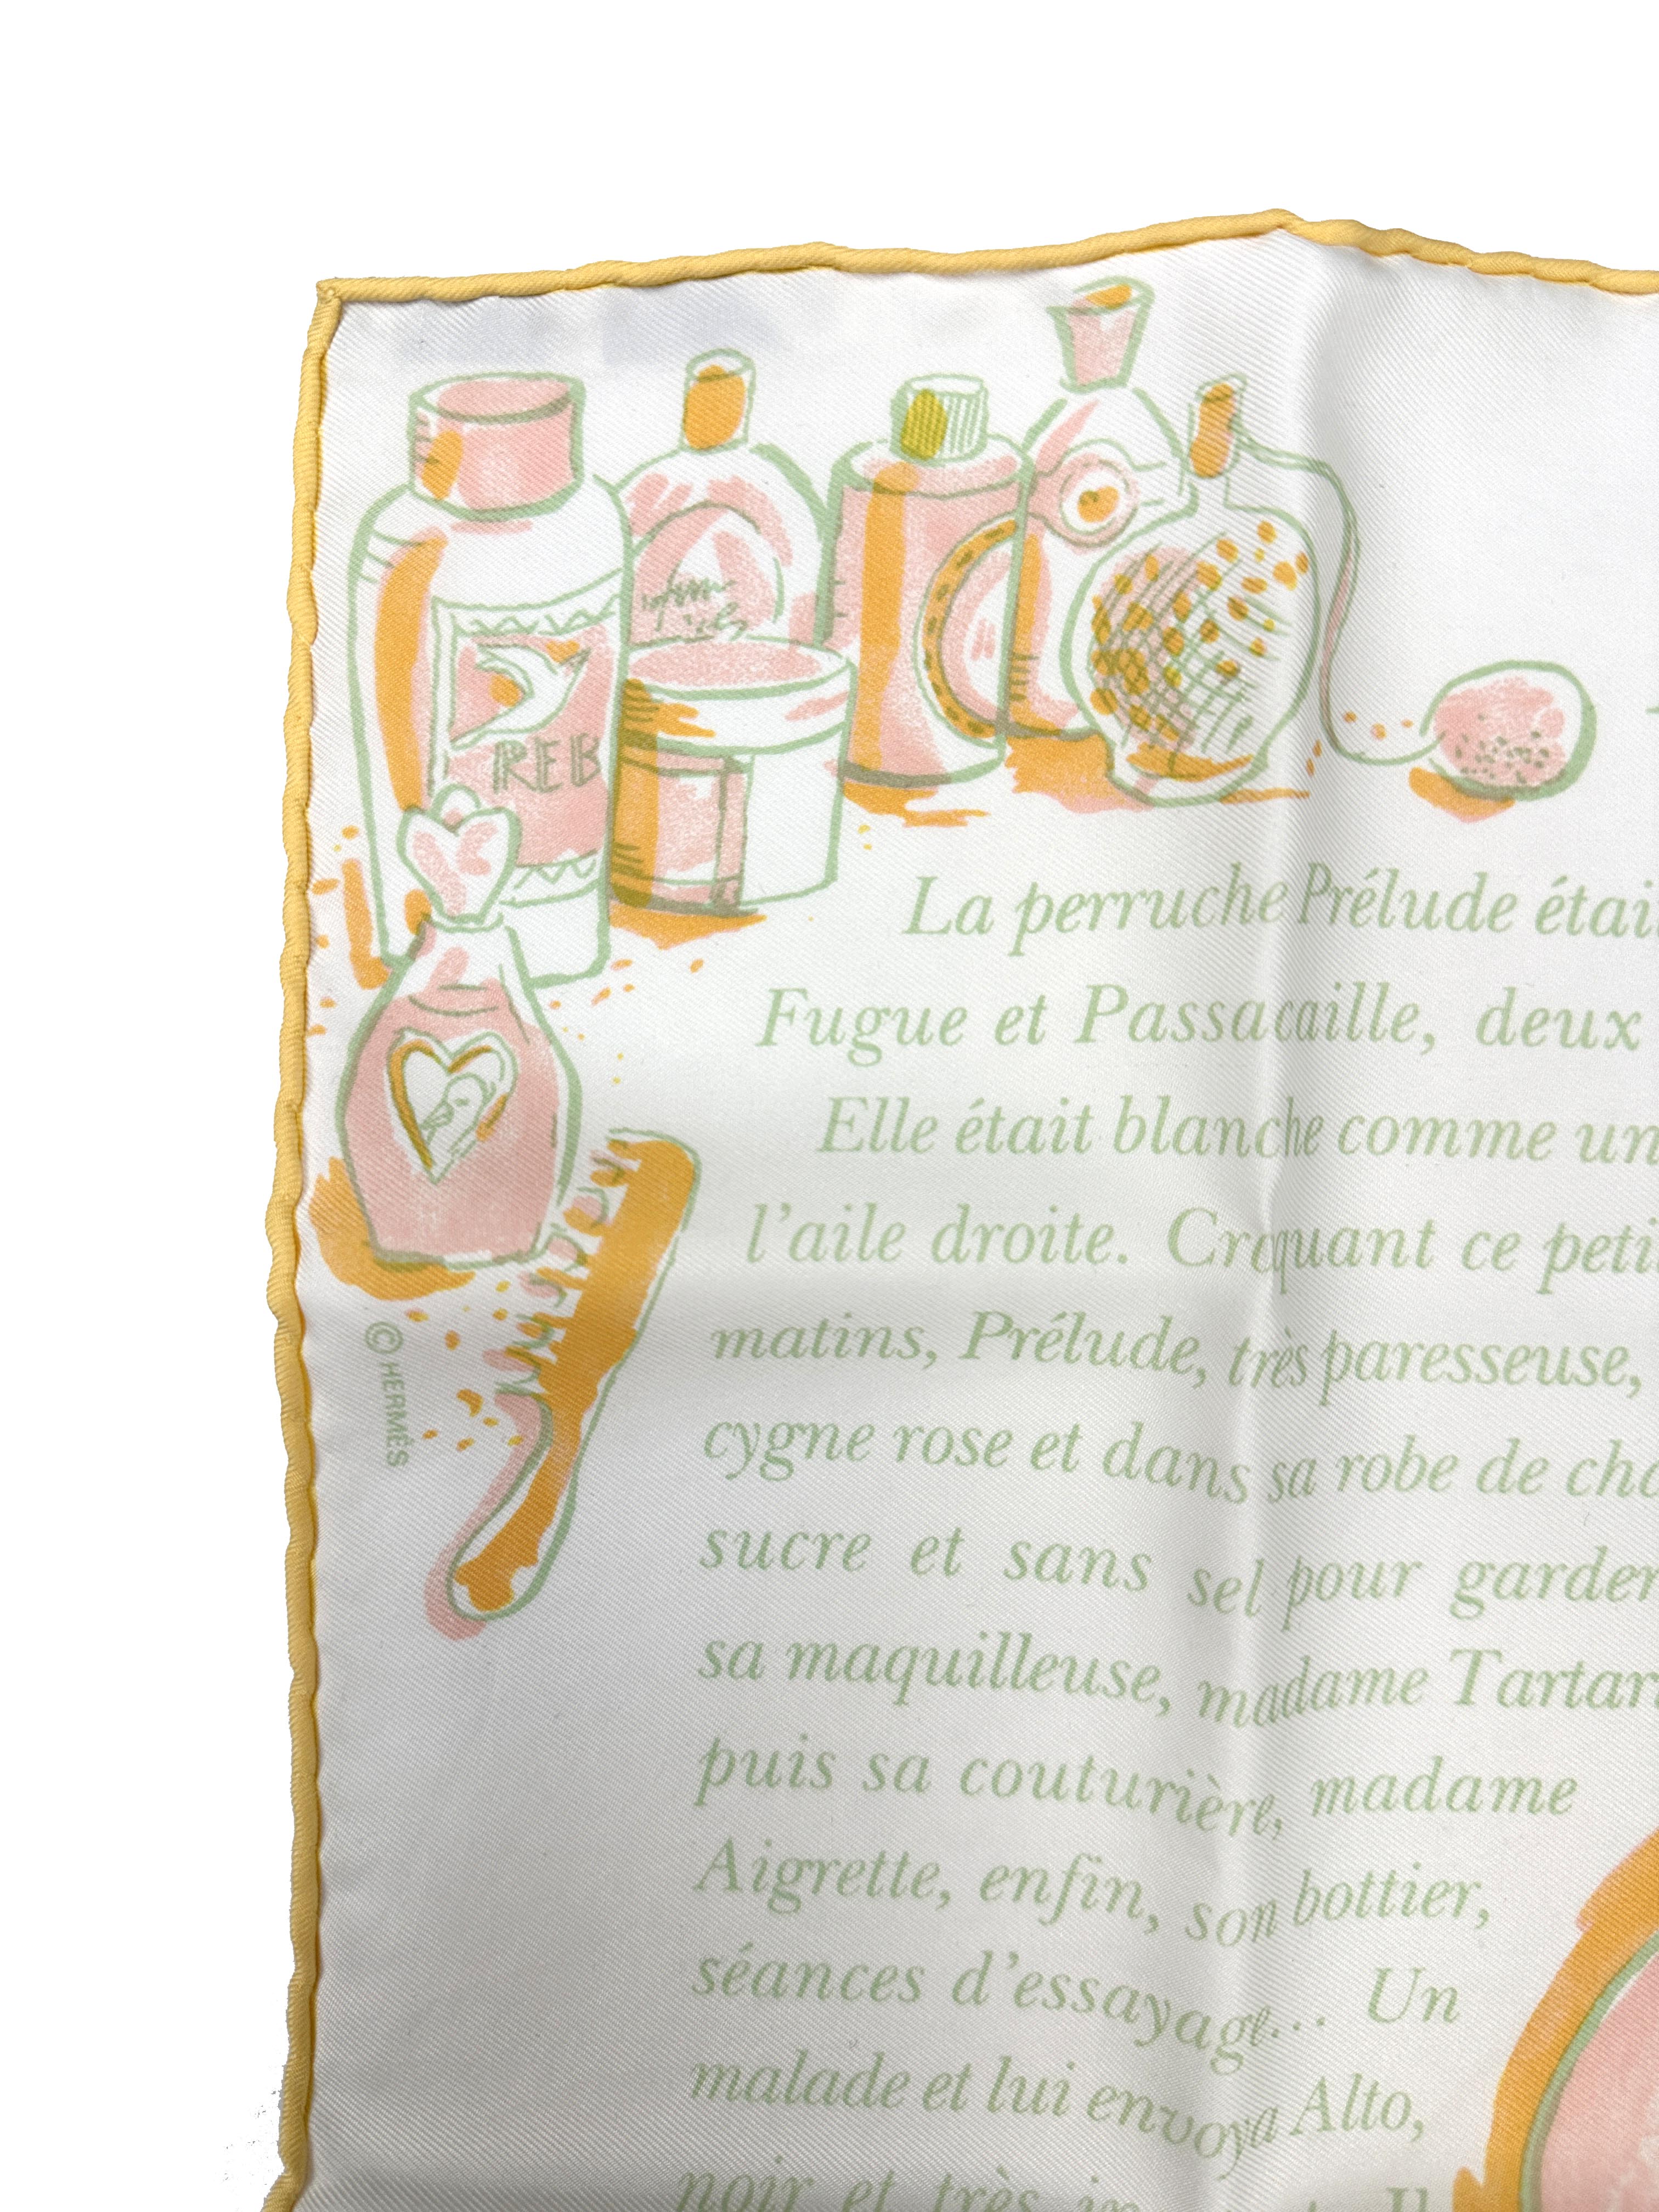 REB
La perruche Prélude étai
Fugue et Passacaille, deux
Elle était blanche comme un
l'aile droite. Croquant ce peti
matins, Prélude, très paresseuse,
cygne rose et dans sa robe de cha
sucre et sans sel pour garder
sa maquilleuse, madame Tartar
puis sa couturière, madame
Aigrette, enfin, son bottier,
séances d'essayage... Un
malade et lui envoya Alto,
noir et très Il
© HERMÈS